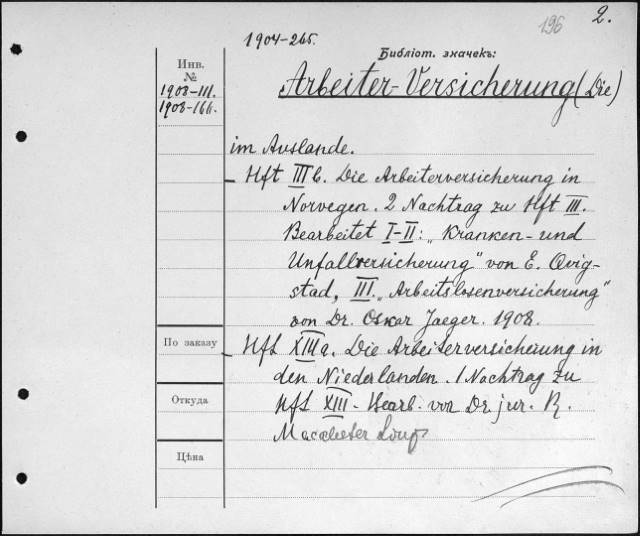 196 2.
1904-265.
Библіот. значекъ:
Инв.
№
1908-III.
1908-166.
Arbeiter-Versicherung (Die)
im Auslande.
– Hft III b. Die Arbeiterversicherung in
Norvegen. 2 Nachtrag zu Hft III.
Bearbeitet I-II: „Kranken- und
Unfallversicherung" von E. Qvig-
stad, III. „Arbeitslosenversicherung"
von Dr. Oskar Jaeger. 1908.
По заказу
– Hft XIII a. Die Arbeiterversicherung in
den Niederlanden. 1 Nachtrag zu
Откуда
Hft XIII. Bearb. von Dr jur. R.
Цѣна